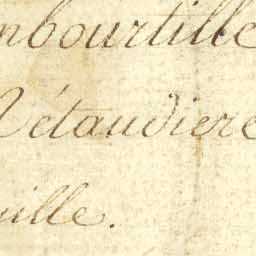 mbourtille
Métaudiere
uille.